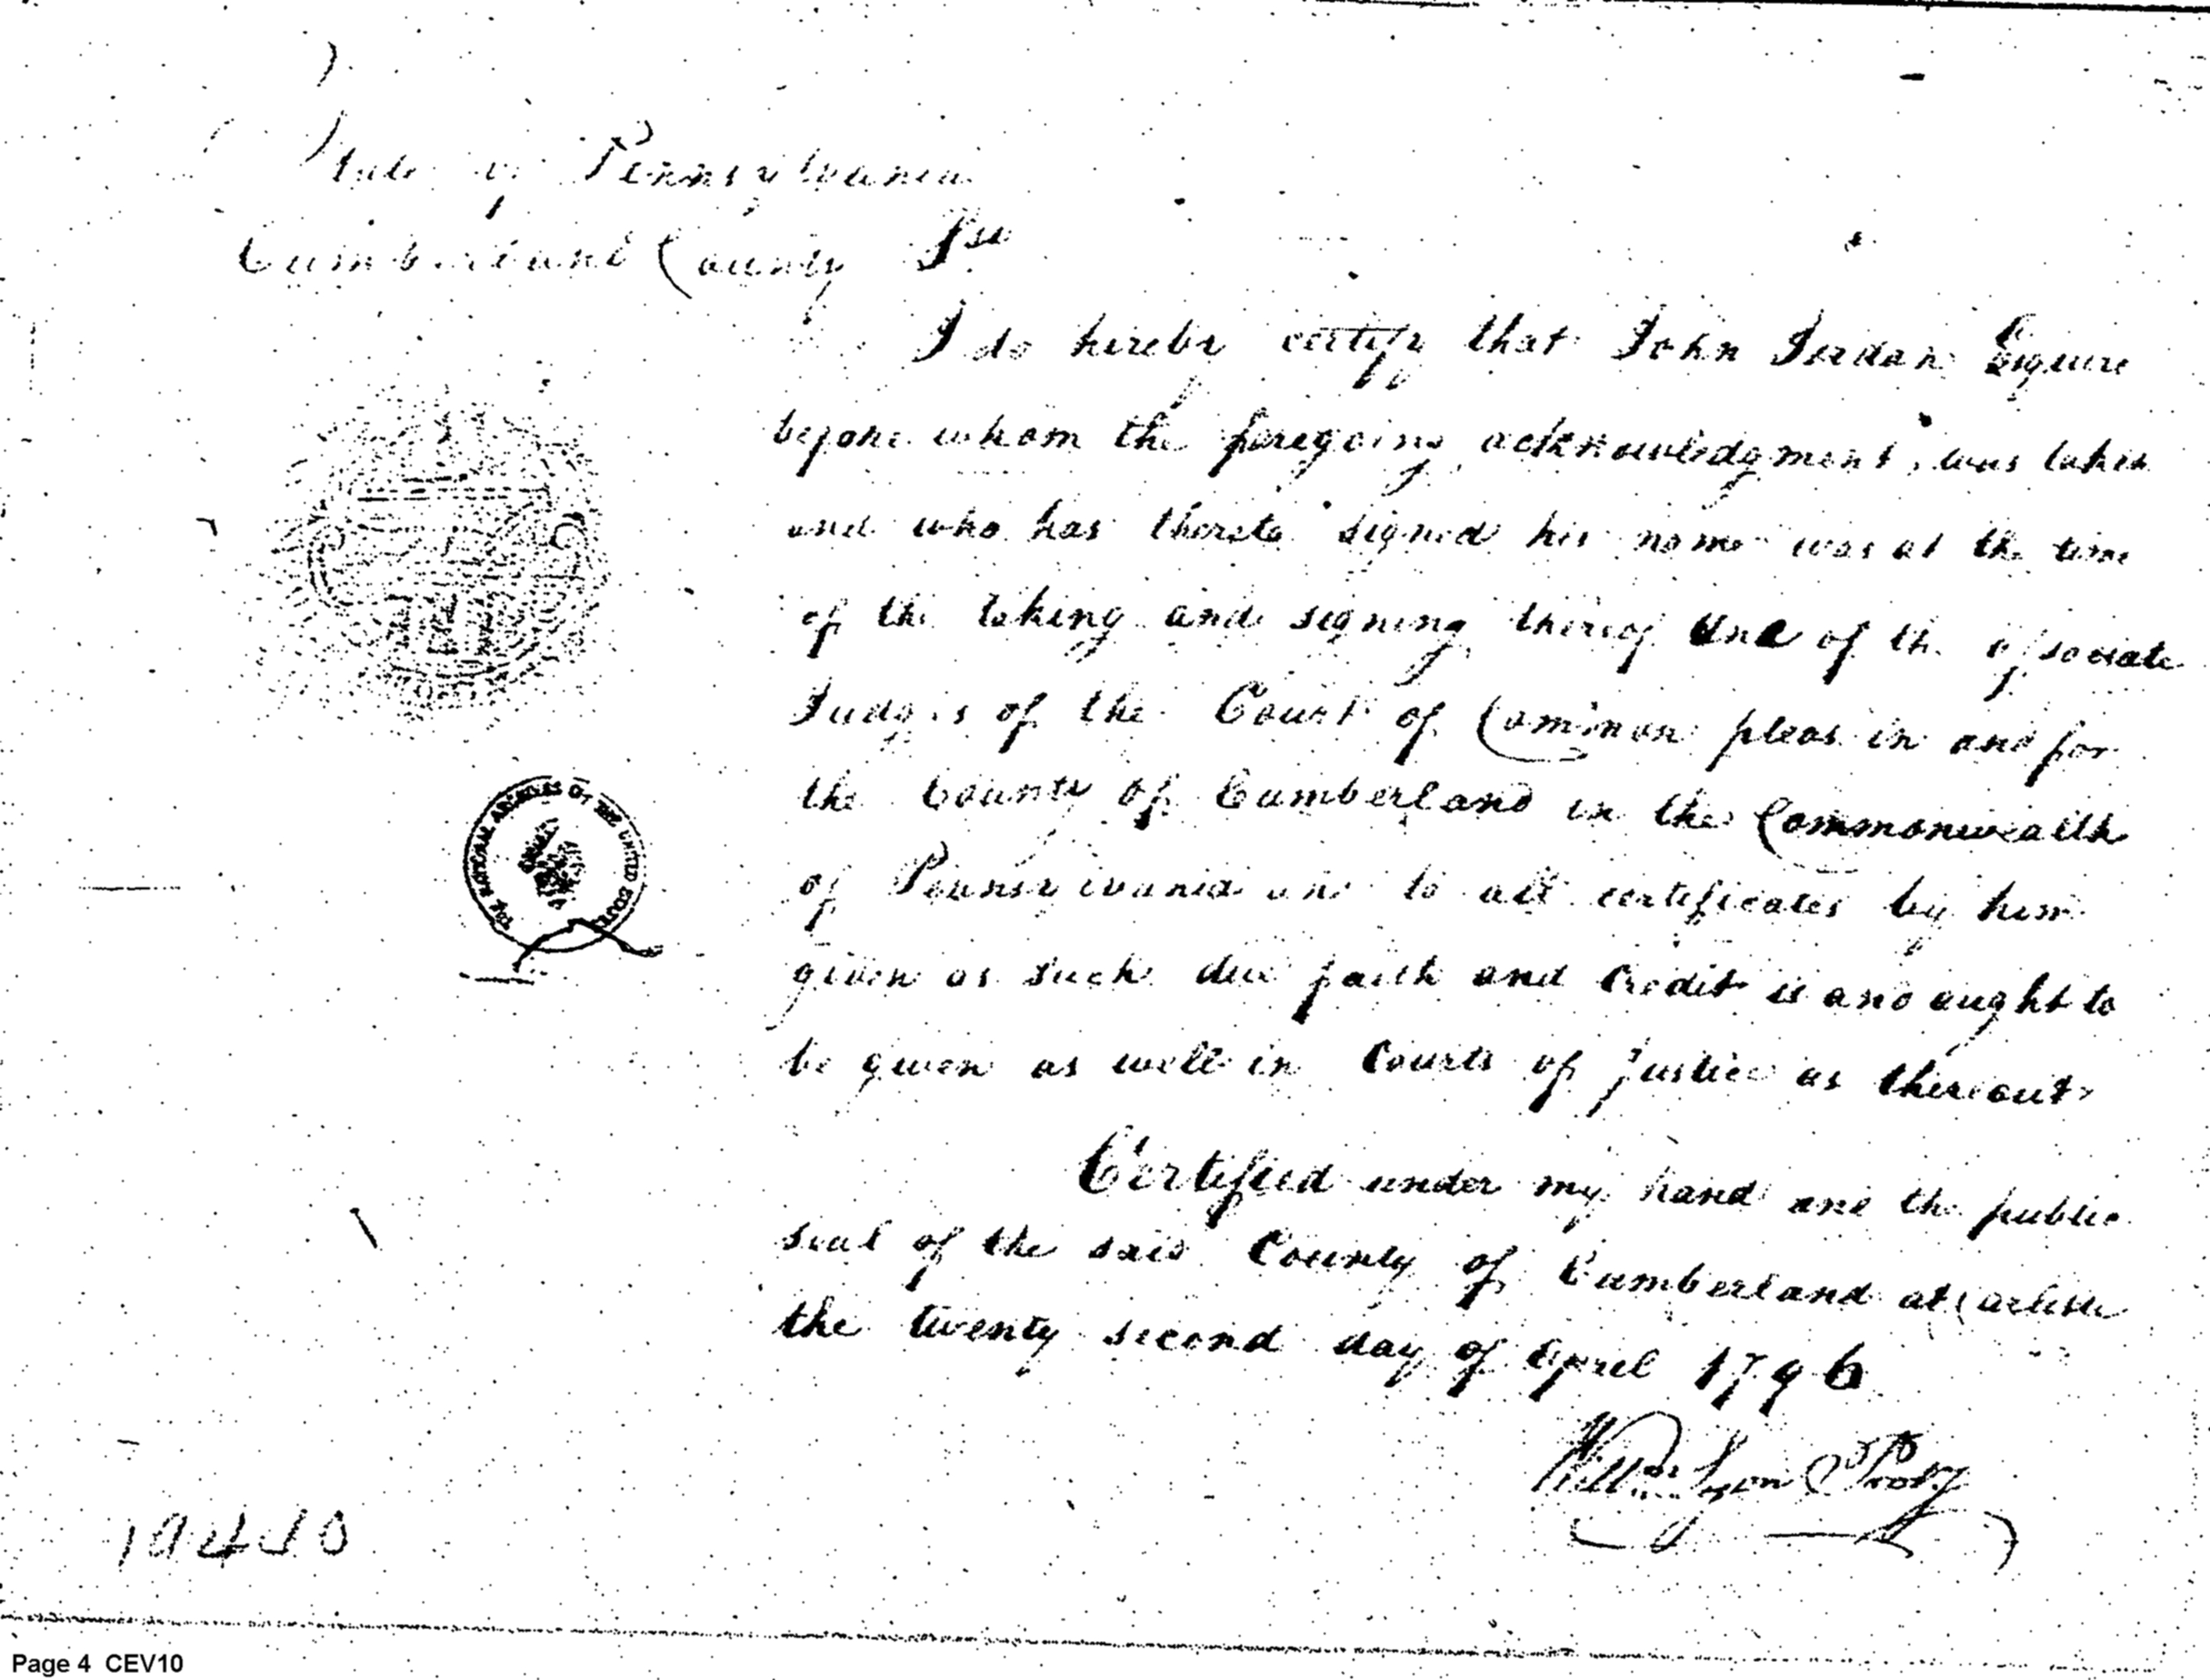 State of Pennsylvania
Cumberland County Ss
I do hereby certify that John Jordan Esquire
before whom the foregoing acknowledgment, was taken
and who has thereto signed his name was at the time
of the taking and signing thereof One of the associate
Judges of the Court of Common pleas in and for
the County of Cumberland in the Commonwealth
of Pennsylvania and to all certificates by him
given as such due faith and Credit is and ought to
be given as well in Courts of Justice as thereout
Certified under my hand and the public
seal of the said County of Cumberland at Carlisle
the twenty second day of April 1796
Willm Lyon Proty
THE NATIONAL ARCHIVES OF THE UNITED STATES
Page 4 CEV10